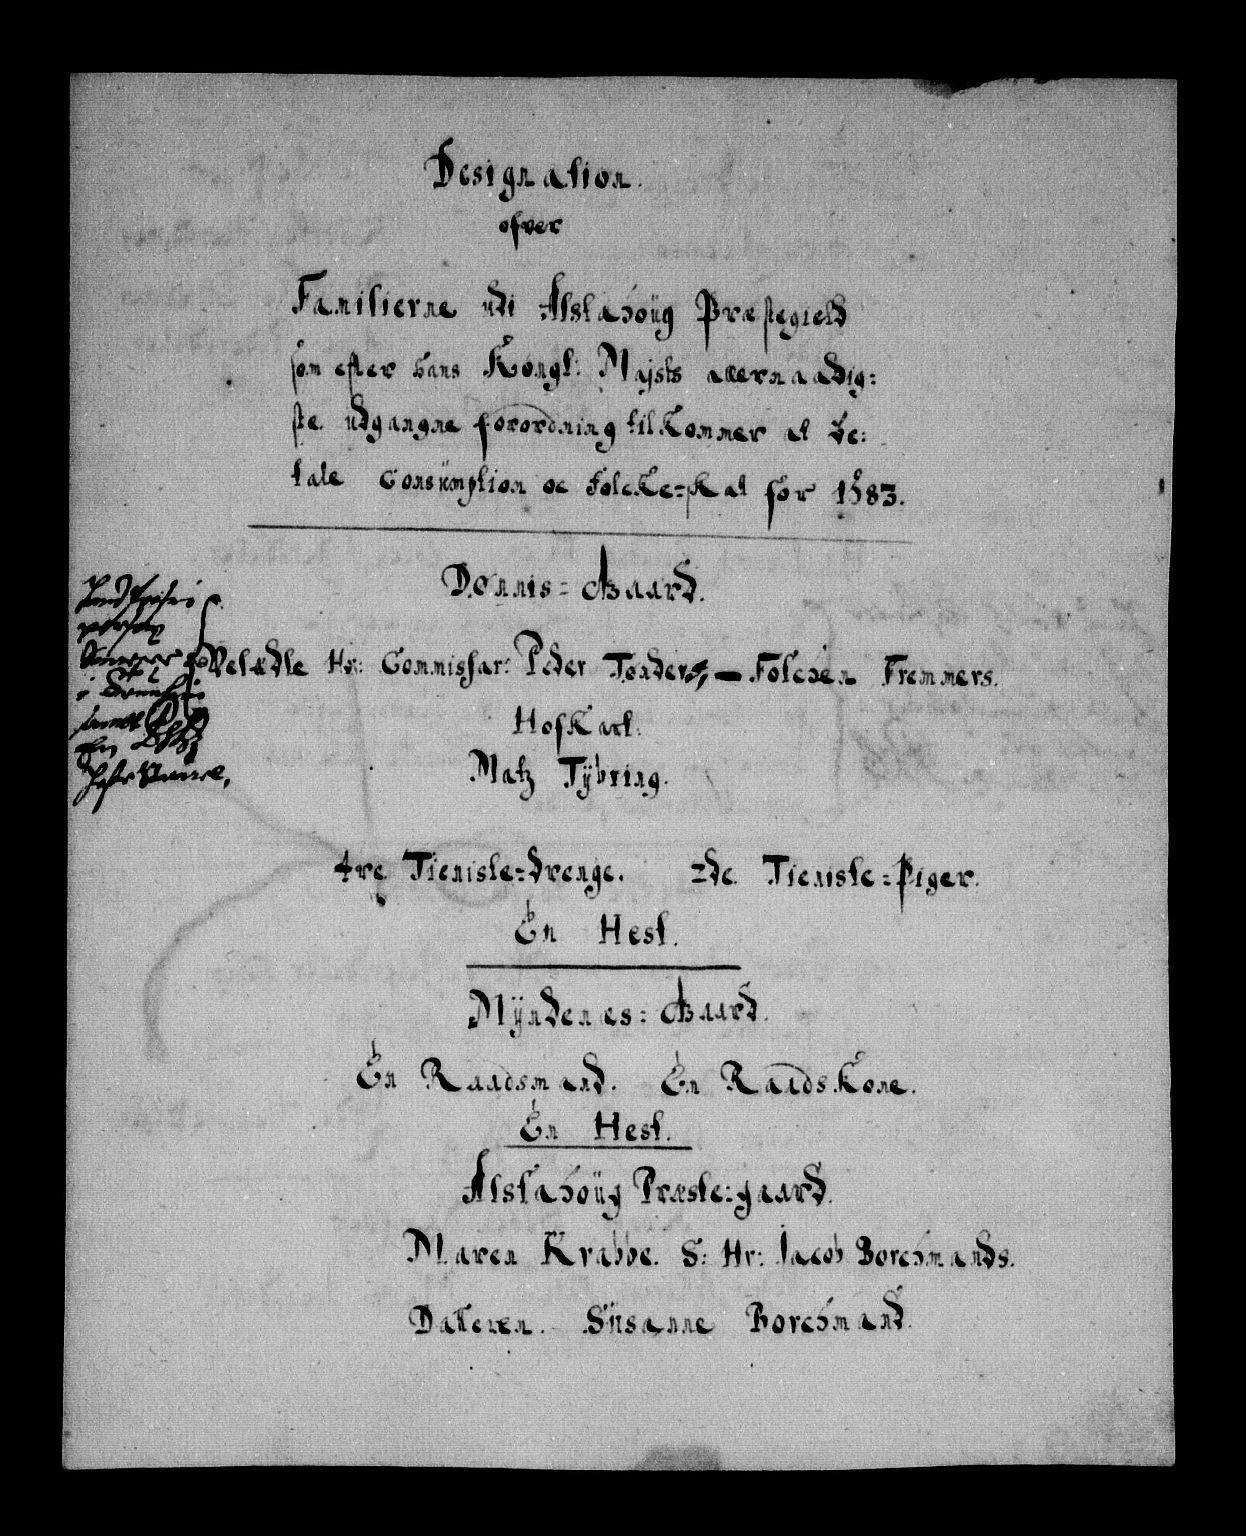 Designation.
ofver
Familierne udi Alstahoüg Præstegield
som efter hans Kongl: Majsts allernaadig:
ste udgangne forordning tilkommer at be:
tale Consümption oc Folcke=skat for 1683.
Dønnis=Gaard.
Velædle Hr: Commissar: Peder Tønders, – Folchen Fremmers.
Hofkarl.
Matz Tÿbring.
4re Tieniste=drenge. 2de Tieniste=Piger.
En Hest.
Mÿndenæs=Gaard.
En Raadsmand. En Raadskone.
En Hest.
Alstahoüg Præste=gaard.
Maren Krabbe. S: Hr: Jacob Borchmands.
Datteren. Süsanne Borchmand.